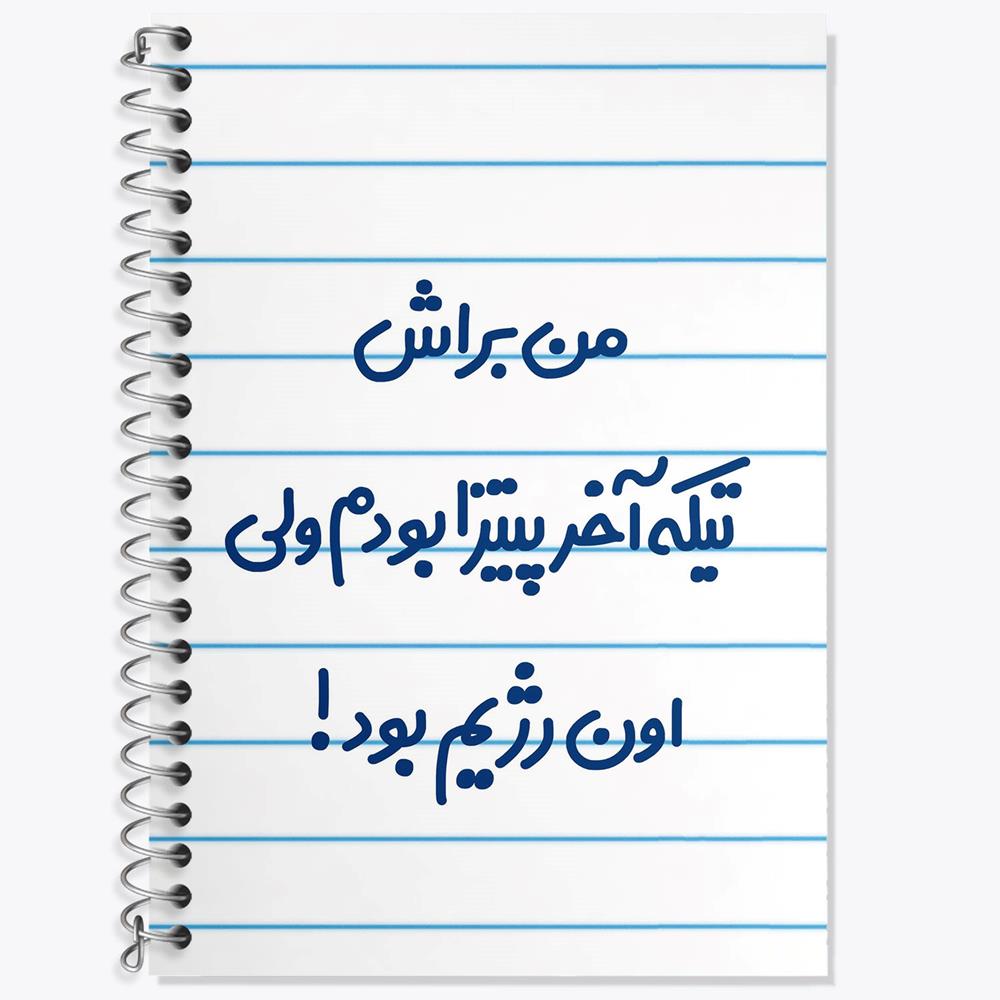 من براش
تیکه آخر پیتزا بودم ولی
اون رژیم بود!